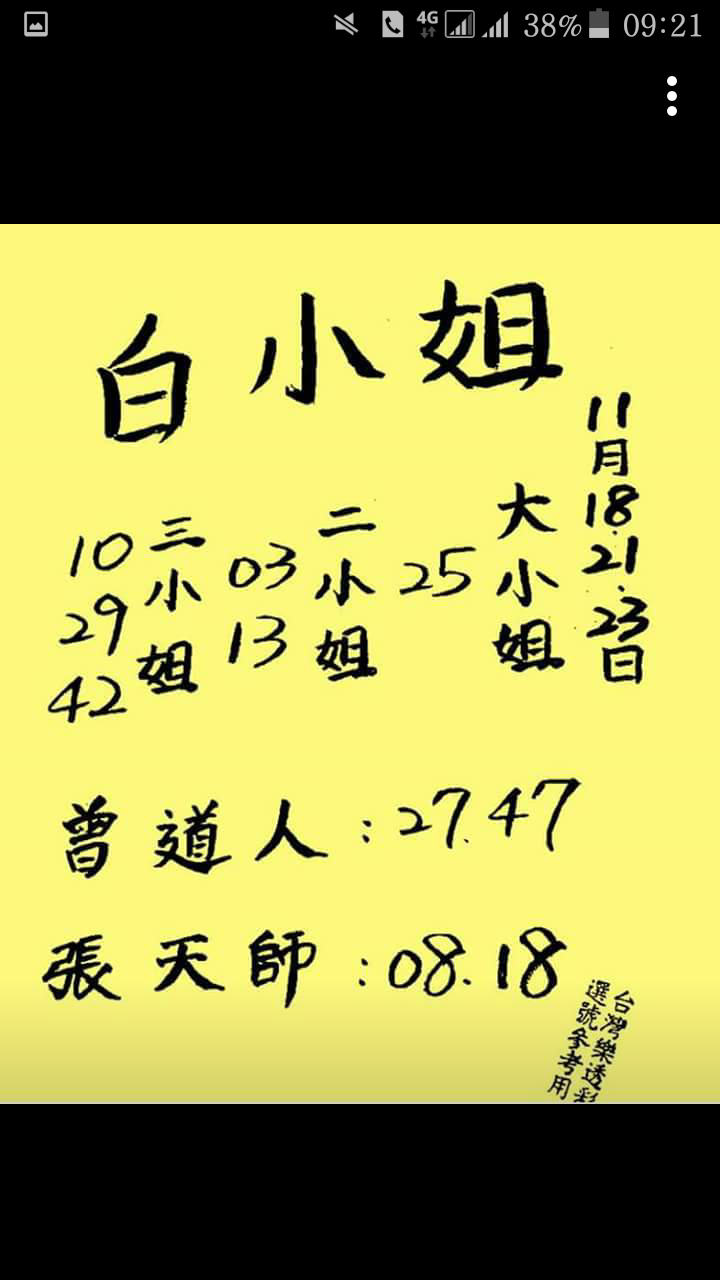 4G 38% 09:21
白小姐
11月18.21.23日
大小姐
25
二小姐
03
13
三小姐
10
29
42
曾道人:27.47
張天師:08.18
台灣樂透彩
選號參考用